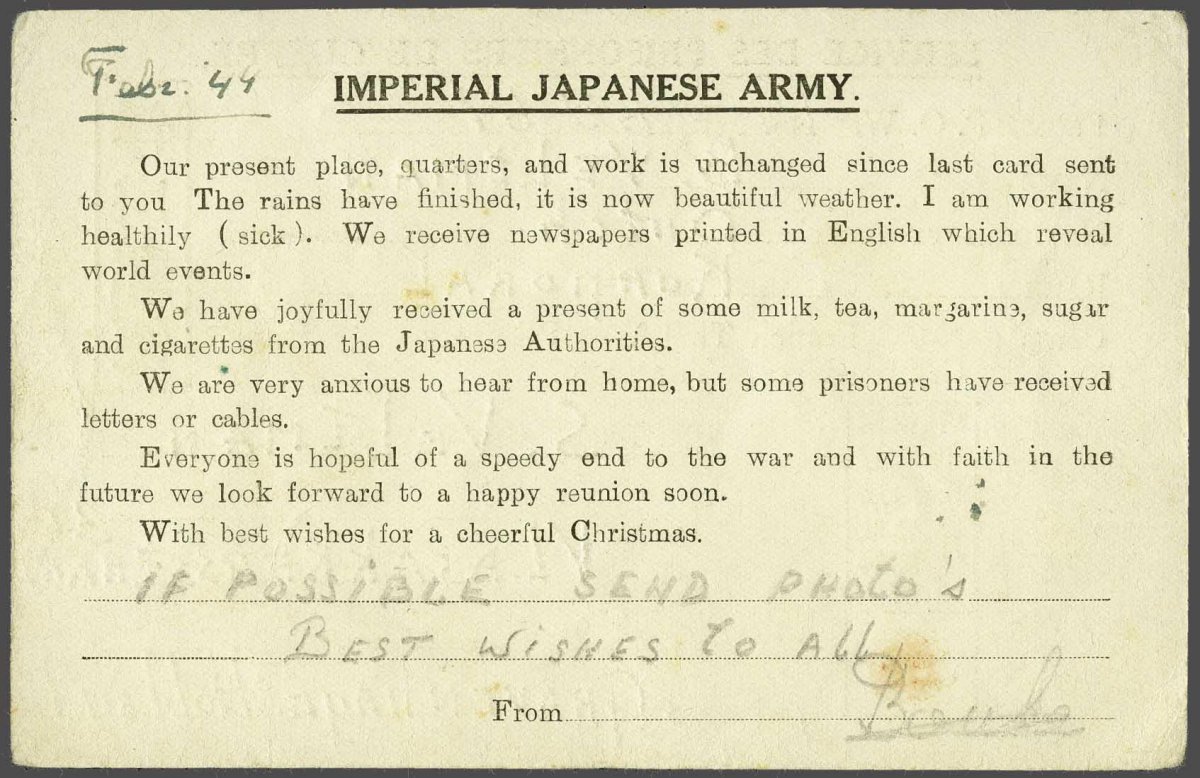 Febr. '44
IMPERIAL JAPANESE ARMY.
Our present place, quarters, and work is unchanged since last card sent
to you The rains have finished, it is now beautiful weather. I am working
healthily ( sick ). We receive newspapers printed in English which reveal
world events.
We have joyfully received a present of some milk, tea, margarine, sugar
and cigarettes from the Japanese Authorities.
We are very anxious to hear from home, but some prisoners have received
letters or cables.
Everyone is hopeful of a speedy end to the war and with faith in the
future we look forward to a happy reunion soon.
With best wishes for a cheerful Christmas.
IF POSSIBLE SEND PHOTO'S
BEST WISHES TO ALL,
From